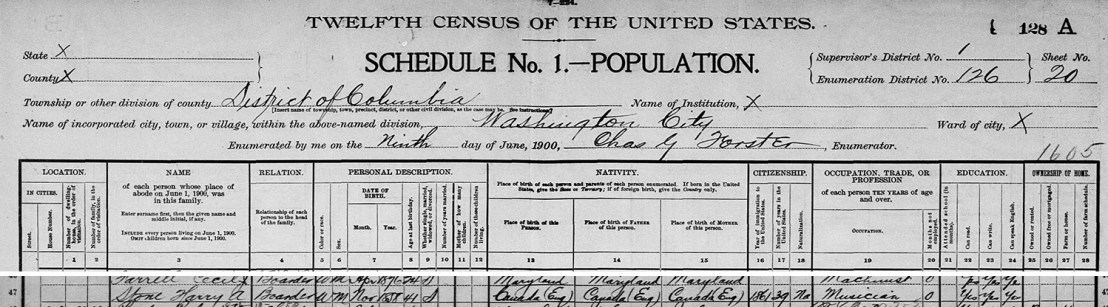 7-224.
TWELFTH CENSUS OF THE UNITED STATES.
128 A
State X
County X
SCHEDULE No. 1.—POPULATION.
Supervisor's District No. 1
Enumeration District No. 126
Sheet No. 20
Township or other division of county District of Columbia Name of Institution, X
[Insert name of township, town, precinct, district, or other civil division, as the case may be. See instructions.]
Name of incorporated city, town, or village, within the above-named division, Washington City Ward of city, X
Enumerated by me on the Ninth day of June, 1900, Chas G Forster, Enumerator.
1605
LOCATION. NAME RELATION. PERSONAL DESCRIPTION. NATIVITY. CITIZENSHIP. OCCUPATION, TRADE, OR PROFESSION EDUCATION. OWNERSHIP OF HOME.
IN CITIES.
Street.
House Number.
Number of dwelling-house, in the order of visitation.
Number of family, in the order of visitation.
of each person whose place of abode on June 1, 1900, was in this family.
Enter surname first, then the given name and middle initial, if any.
INCLUDE every person living on June 1, 1900.
OMIT children born since June 1, 1900.
Relationship of each person to the head of the family.
Color or race.
Sex.
DATE OF BIRTH.
Month. Year.
Age at last birthday.
Whether single, married, widowed, or divorced.
Number of years married.
Mother of how many children.
Number of these children living.
Place of birth of each person and parents of each person enumerated. If born in the United States, give the State or Territory; if of foreign birth, give the Country only.
Place of birth of this PERSON.
Place of birth of FATHER of this person.
Place of birth of MOTHER of this person.
Year of immigration to the United States.
Number of years in the United States.
Naturalization.
of each person TEN YEARS of age and over.
OCCUPATION.
Months not employed.
Attended school (in months).
Can read.
Can write.
Can speak English.
Owned or rented.
Owned free or mortgaged.
Farm or house.
Number of farm schedule.
1 2 3 4 5 6 7 8 9 10 11 12 13 14 15 16 17 18 19 20 21 22 23 24 25 26 27 28
Farrell Cecil Boarder W M Apr 1876 24 S Maryland Maryland Maryland Machinist 0 Yes Yes Yes
47 Stone Harry A Boarder W M Nov 1858 41 S Canada (Eng) Canada (Eng) Canada (Eng) 1861 39 Na Musician 0 Yes Yes Yes 47